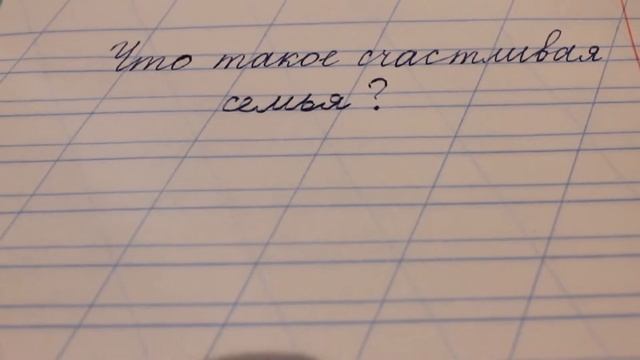 Что такое счастливая
семья?